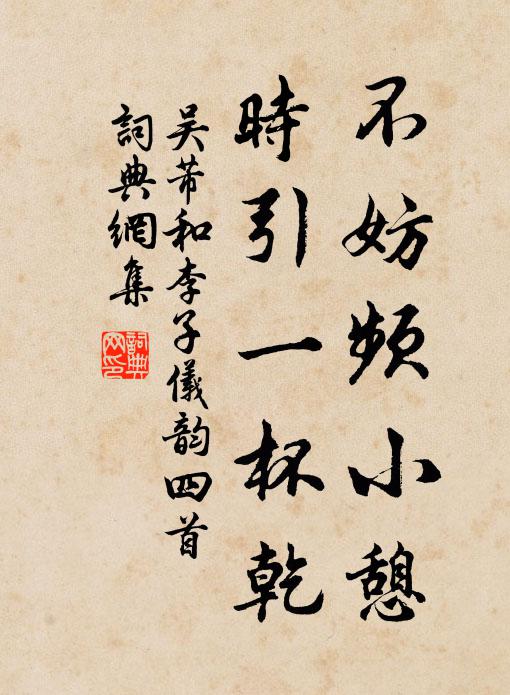 不妨頻小憩
時引一杯乾
吴芾和李子儀韵四首
詞典網集
詞典
网印